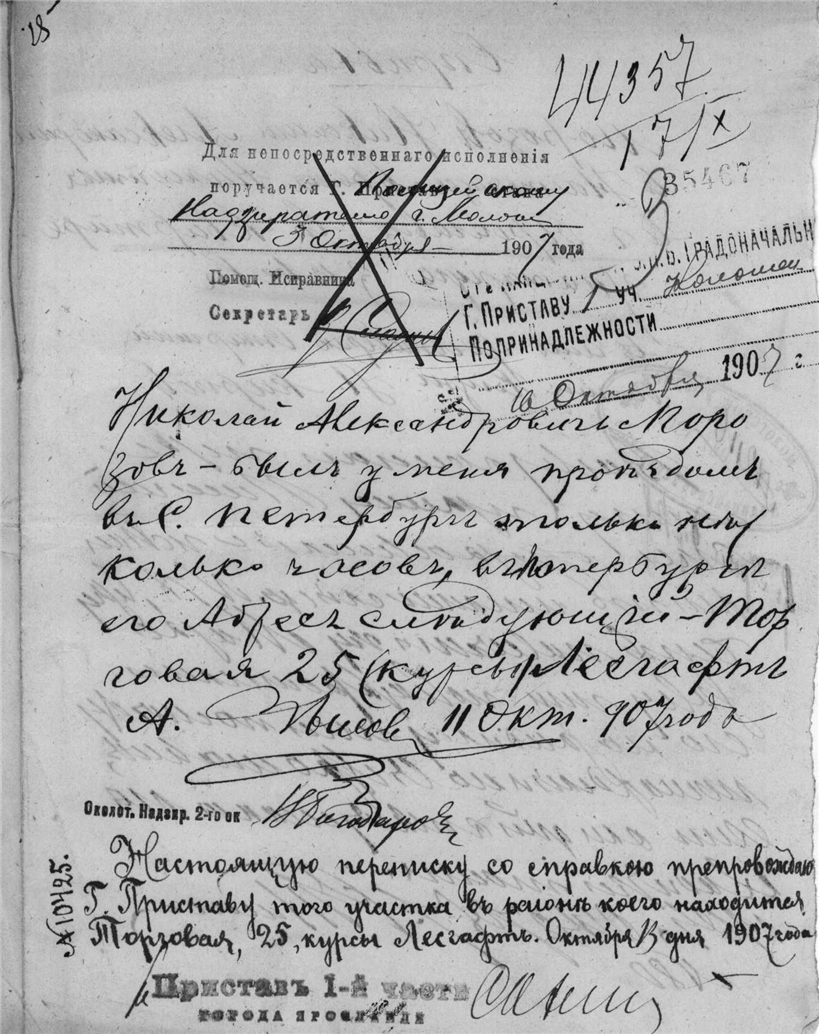 28
44357
17/X
35467
Для непосредственнаго исполненія
поручается Г. Полицейскому
Надзирателю г. Мологи
5 Октября 1907 года
Помощ. Исправника
Секретарь
С.П.Б. ГРАДОНАЧАЛЬН
Г. ПРИСТАВУ УЧ. Коломен
ПО ПРИНАДЛЕЖНОСТИ
16 Октября 1907 г.
Николай Александровичъ Моро
зовъ – былъ у меня проѣздомъ
въ С. Петербургъ только нѣс
колько часовъ, въ Петербургѣ
его Адресъ слѣдующій – Тор
говая 25 (курсы) Лесгафтъ
А. 11 Окт. 907 года
Околот. Надзир. 2-го ок
Настоящую переписку со справкою препровождаю
Г. Приставу того участка въ районѣ коего находится
Торговая, 25, курсы Лесгафтъ. Октября 13 дня 1907 года
№ 10425.
Приставъ 1-й части
ГОРОДА ЯРОСЛАВЛЯ